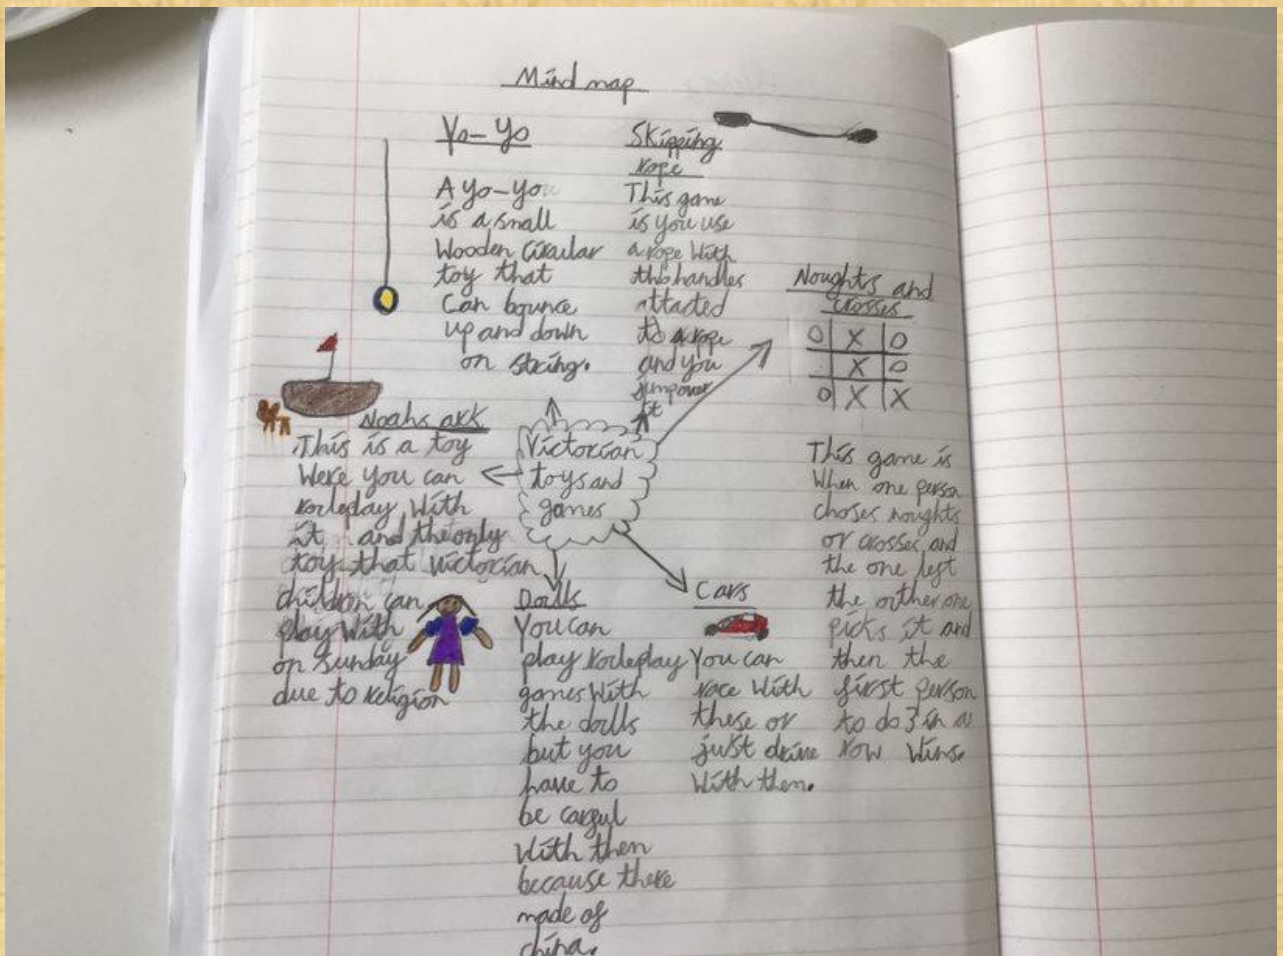 Mind map
Yo-Yo
A yo-yo
is a small
Wooden Circular
toy that
Can bounce
up and down
on string.
Skipping
rope
This game
is you use
a rope With
this handles
attacted
to a rope
and you
jump over
it
Noughts and
crosses
O X O
X O
O X X
This game is
When one person
choses noughts
or crosses and
the one left
the orther one
picks it and
then the
first person
to do 3 in a
row wins.
Victorian
toys and
games
Noahs ark
This is a toy
Were you can
rorleplay With
it and the only
toy that victorian
children can
play With
on Sunday
due to religion
Dorlls
You can
play rorleplay
games With
the dorlls
but you
have to
be carful
With then
because there
made of
china.
Cars
You can
race With
these or
just drive
With them.